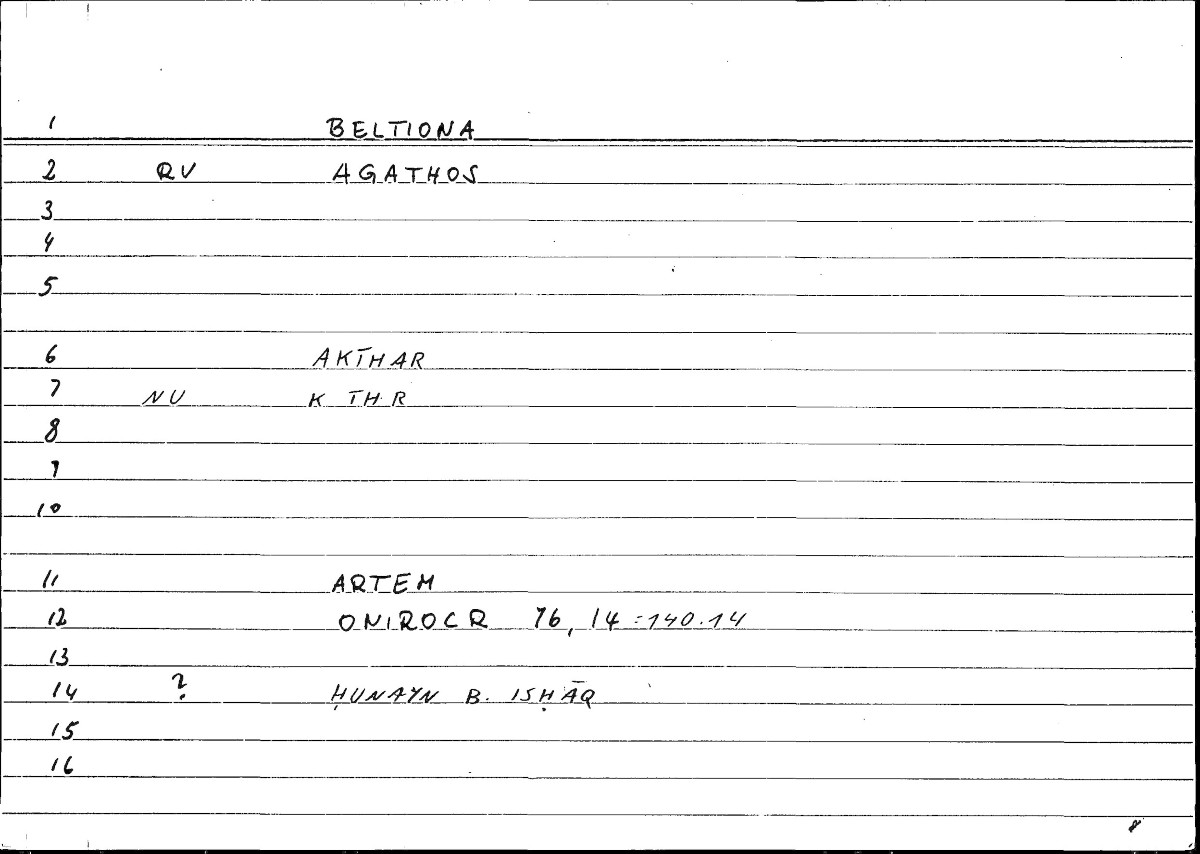 1 BELTIONA
2 QV AGATHOS
3
4
5
6 AKT̄HAR
7 NU K T̄H R
8
9
10
11 ARTEM
12 ONIROCR 76, 14 = 140.14
13
14 ? ḤUNAYN B. ISḤĀQ
15
16
8